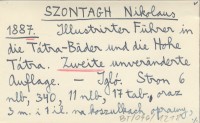 SZONTAGH Nikolaus
1887. Illustrirter Führer in
die Tátra-Bäder und die Hohe
Tátra. Zweite unveränderte
Auflage. — Igló. Stron 6
nlb, 340, 11 nlb, 17 tab, oraz
3 m. i 1 il. na koszulkach oprawy,